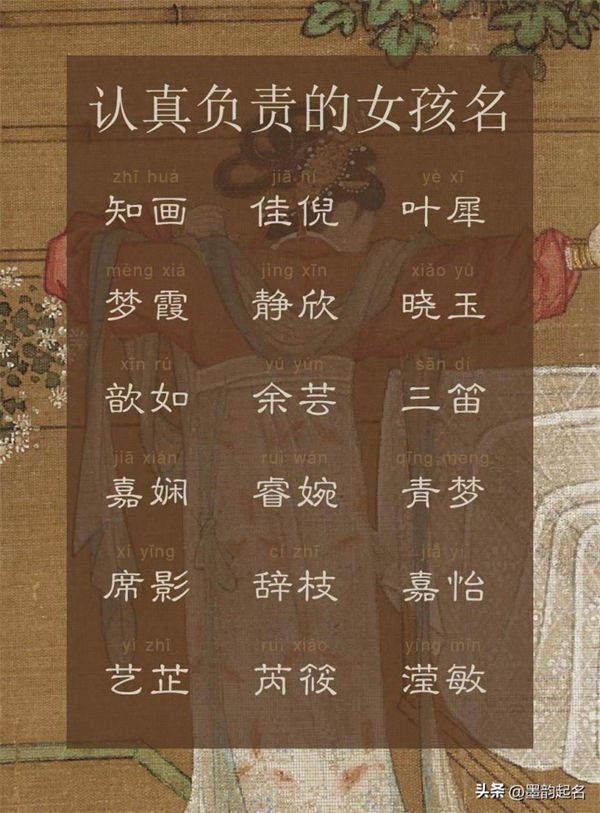 认真负责的女孩名
zhī huà jiā ní yè xī
知画 佳倪 叶犀
mèng xiá jìng xīn xiǎo yù
梦霞 静欣 晓玉
xīn rú yú yún sān dí
歆如 余芸 三笛
jiā xián ruì wǎn qīng mèng
嘉娴 睿婉 青梦
xí yǐng cí zhī jiā yí
席影 辞枝 嘉怡
yì zhǐ ruì xiǎo yíng mǐn
艺芷 芮筱 滢敏
头条 @墨韵起名